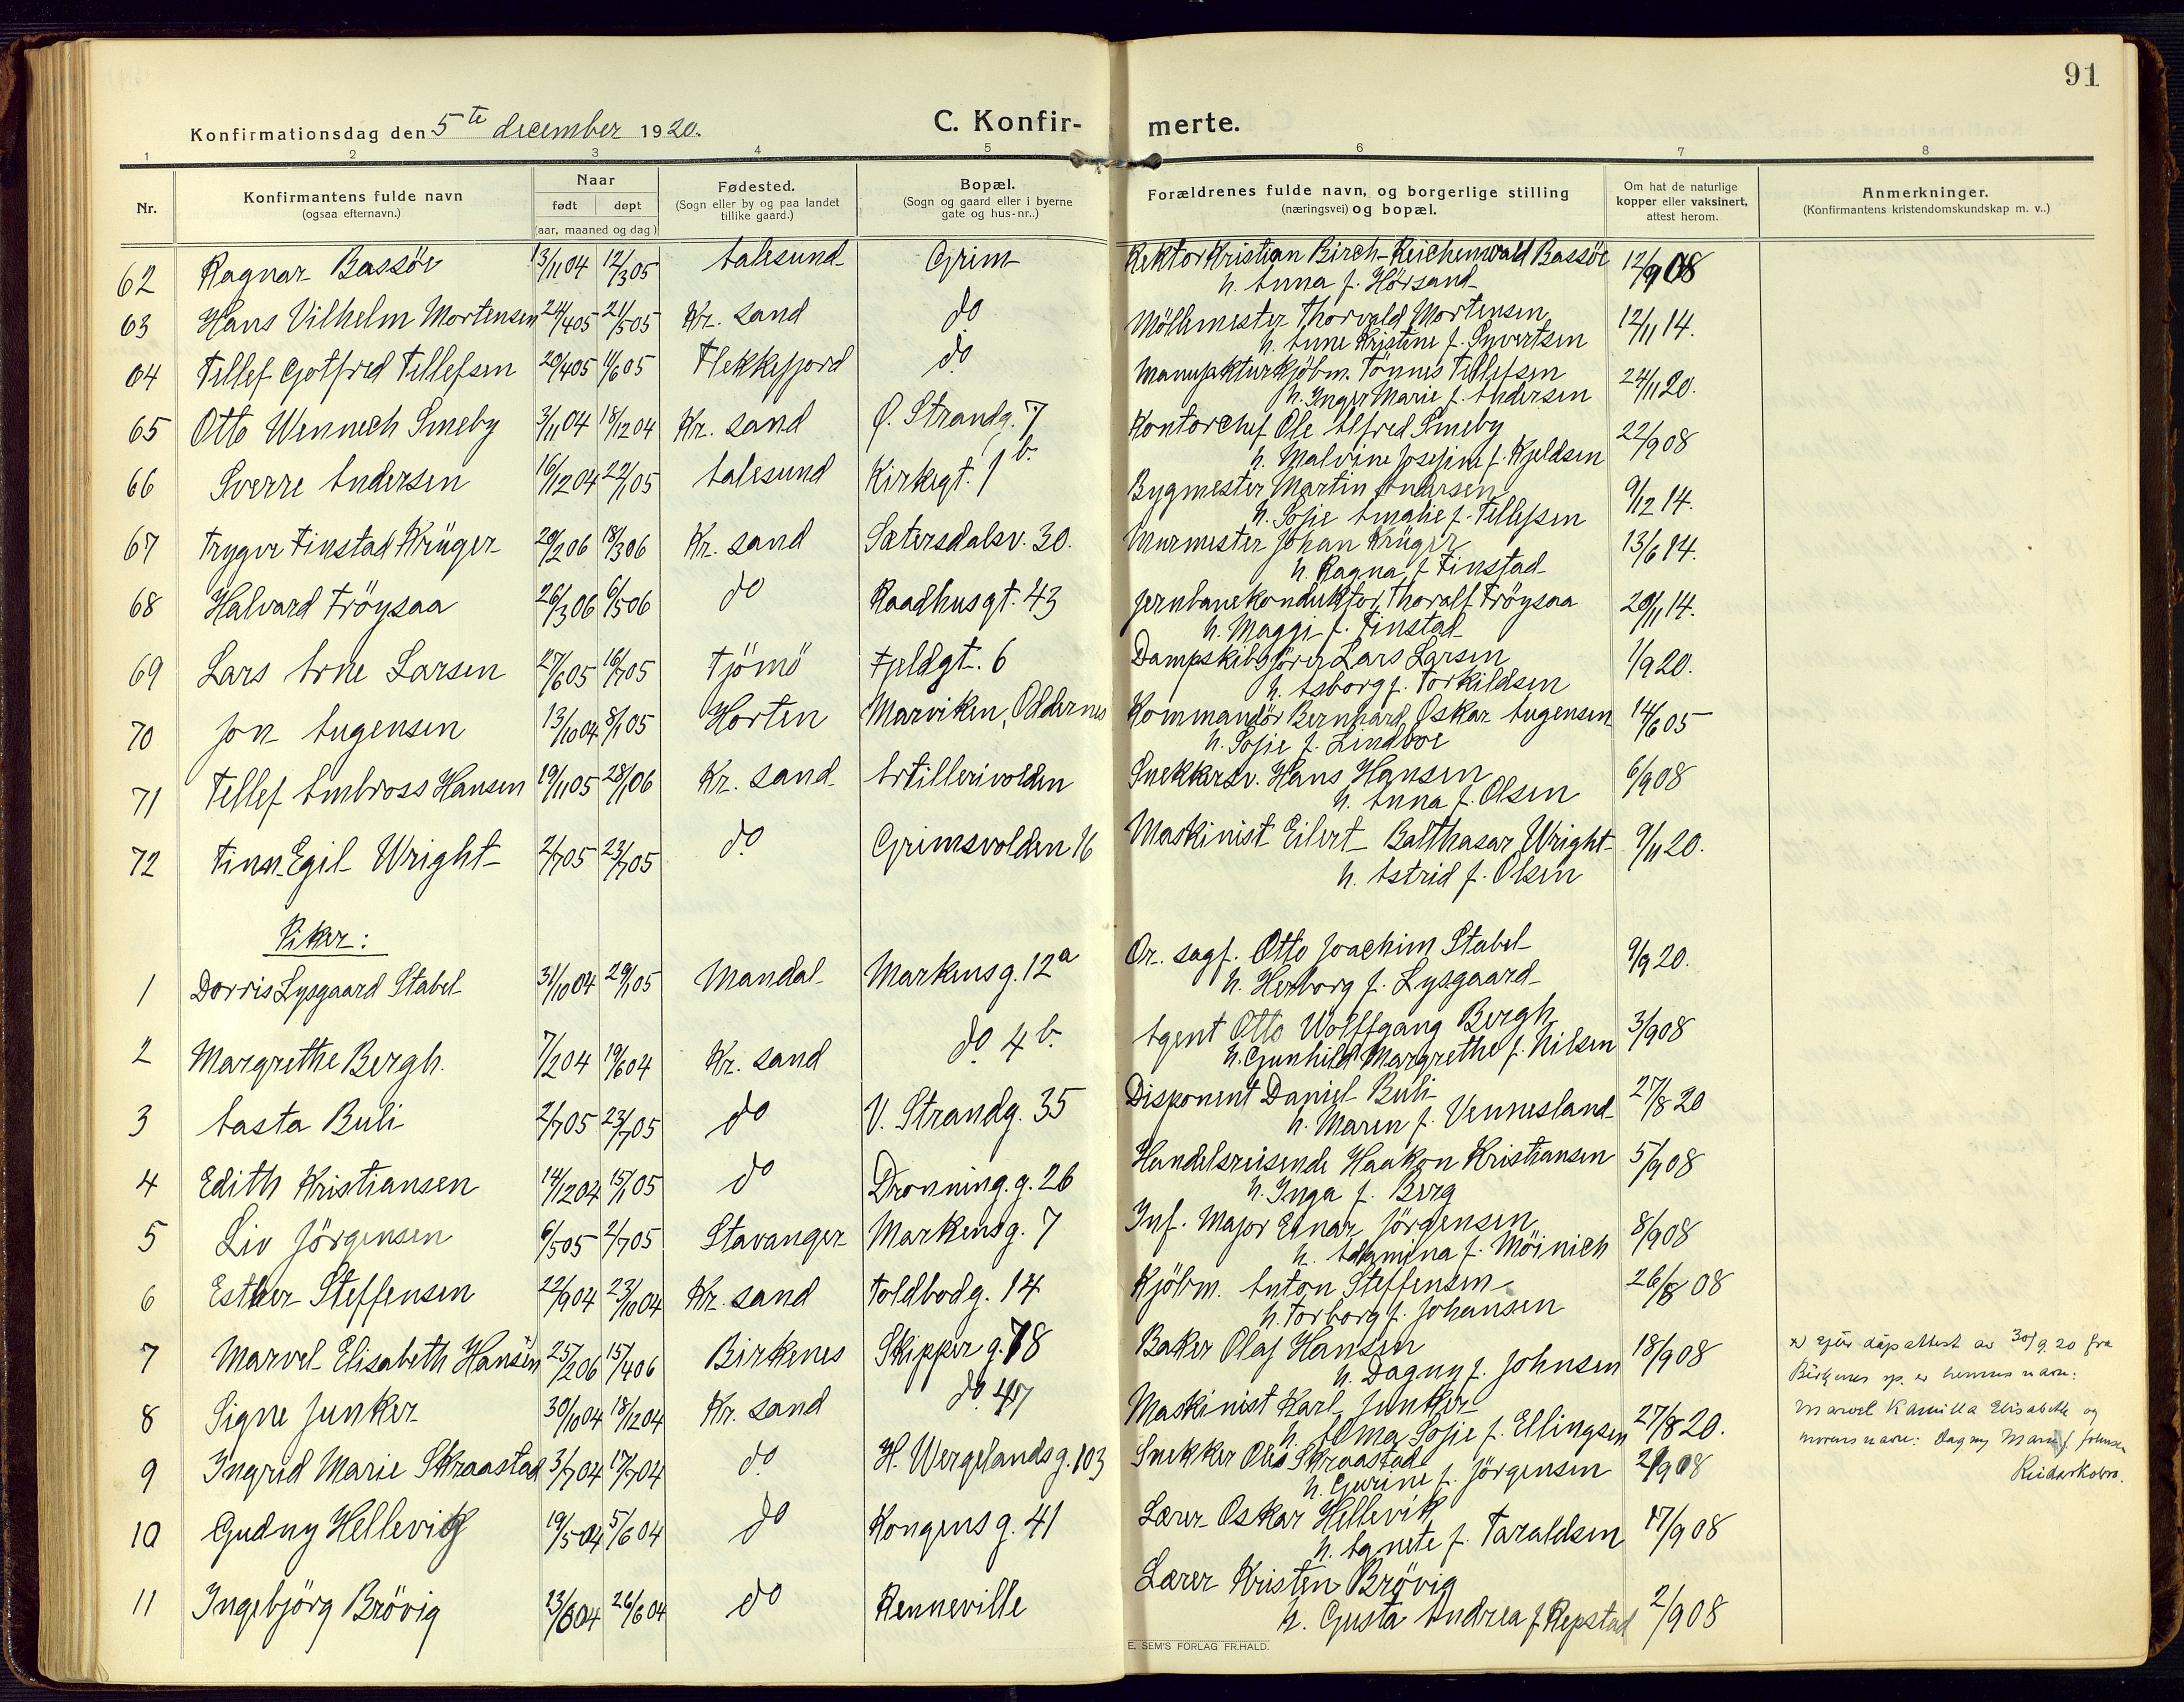 91
Konfirmationsdag den 5te december 1920.
C. Konfir- merte.
1 2 3 4 5 6 7 8
Nr.
Konfirmantens fulde navn
(ogsaa efternavn.)
Naar
født døpt
(aar, maaned og dag)
Fødested.
(Sogn eller by og paa landet
tillike gaard.)
Bopæl.
(Sogn og gaard eller i byerne
gate og hus-nr..)
Forældrenes fulde navn, og borgerlige stilling
(næringsvei) og bopæl.
Om hat de naturlige
kopper eller vaksinert,
attest herom.
Anmerkninger.
(Konfirmantens kristendomskundskap m. v..)
62 Ragnar Bassöe 13/11 04 12/3 05 Aalesund Grim Rektor Kristian Birch-Reichenwald Bassöe 12/9 08
h. Anna f. Hørsand
63 Hans Vilhelm Mortensen 24/4 05 21/5 05 Kr. sand do Möllemester Thorvald Mortensen 12/11 14.
h. Anne Kristine f. Syvertsen
64 Tellef Gotfred Tellefsen 29/4 05 11/6 05 Flekkefjord do Manufakturkjöbm. Tönnes Tellefsen 24/11 20.
h. Inger Marie f. Andersen
65 Otto Wennech Smeby 3/11 04 18/12 04 Kr. sand Ø. Strandg. 7 Kontorchef Ole Alfred Smeby 22/9 08
h. Malvine Josefine f. Kjeldsen
66 Sverre Andersen 16/12 04 22/1 05 Aalesund Kirkegt. 1 b. Bygmester Martin Andersen 9/12 14.
h. Sofie Amalie f. Tellefsen
67 Trygve Finstad Krüger 20/2 06 18/3 06 Kr. sand Sætersdalsv. 30. Murmester Johan Krüger 13/6 14.
h. Ragna f. Finstad
68 Halvard Tröysaa 26/3 06 6/5 06 do Raadhusgt. 43 Jernbanekonduktör Thoralf Tröysaa 20/11 14.
h. Maggi f. Finstad
69 Lars Arne Larsen 27/6 05 16/7 05 Tjömö Fjeldgt. 6 Dampskibsförer Lars Larsen 1/9 20.
h. Asborg f. Torkildsen
70 Jon Augensen 13/10 04 8/1 05 Horten Marviken, Oddernes Kommandör Bernhard Oskar Augensen 14/6 05
h. Sofie f. Lindboe
71 Tellef Ambross Hansen 19/11 05 28/1 06 Kr. sand Artillerivolden Snekkersv. Hans Hansen 6/9 08
h. Anna f. Olsen
72 Finn Egil Wright 2/7 05 23/7 05 do Grimsvolden 16 Maskinist Eilert Balthasar Wright 9/11 20.
h. Astrid f. Olsen
Piker:
1 Dorris Lysgaard Stabel 31/10 04 29/1 05 Mandal Markensg. 12a Or. sagf. Otto Joachim Stabel 9/9 20.
h. Herborg f. Lysgaard
2 Margrethe Bergh. 7/2 04 19/6 04 Kr. sand do 4 b. Agent Otto Wolffgang Bergh 3/9 08
h. Gunhild Margrethe f. Nilsen
3 Aasta Buli 2/7 05 23/7 05 do V. Strandg. 35 Disponent Daniel Buli 27/8 20
h. Maren f. Vennesland
4 Edith Kristiansen 14/12 04 15/1 05 do Dronning. g. 26 Handelsreisende Haakon Kristiansen 5/9 08
h. Inga f. Berg
5 Liv Jörgensen 6/5 05 2/7 05 Stavanger Markensg. 7 Inf. Major Einar Jörgensen 8/9 08
h. Adamina f. Möinich
6 Esther Steffensen 22/9 04 23/10 04 Kr. sand Toldbodg. 14 Kjöbm. Anton Steffensen 26/8 08
h. Torborg f. Johansen
7 Marvel Elisabeth Hansen 25/2 06 15/4 06 Birkenes Skipperg. 78 Baker Olaf Hansen 18/9 08
h. Dagny f. Johnsen
x) Efter dåpsattest av 30/9 20 fra
Birkenes sp. er hennes navn:
Marvel Kamilla Elisabeth og
morens navn: Dagny Marie f. Johnsen
8 Signe Junker 30/10 04 18/12 04 Kr. sand do 47 Maskinist Karl Junker 27/8 20.
h. Alma Sofie f. Ellingsen
9 Ingrid Marie Skraastad 3/7 04 17/7 04 do H. Wergelandsg. 103 Snekker Olai Skraastad 2/9 08
h. Gurine f. Jörgensen
10 Gudny Hellevig 19/5 04 5/6 04 do Kongensg. 41 Lærer Oskar Hellevik 17/9 08
h. Agnete f. Taraldsen
11 Ingebjörg Brövig 23/6 04 26/6 04 do Renneville Lærer Kristen Brövig 2/9 08
h. Gusta Andrea f. Repstad
E. SEM'S FORLAG FR.HALD.